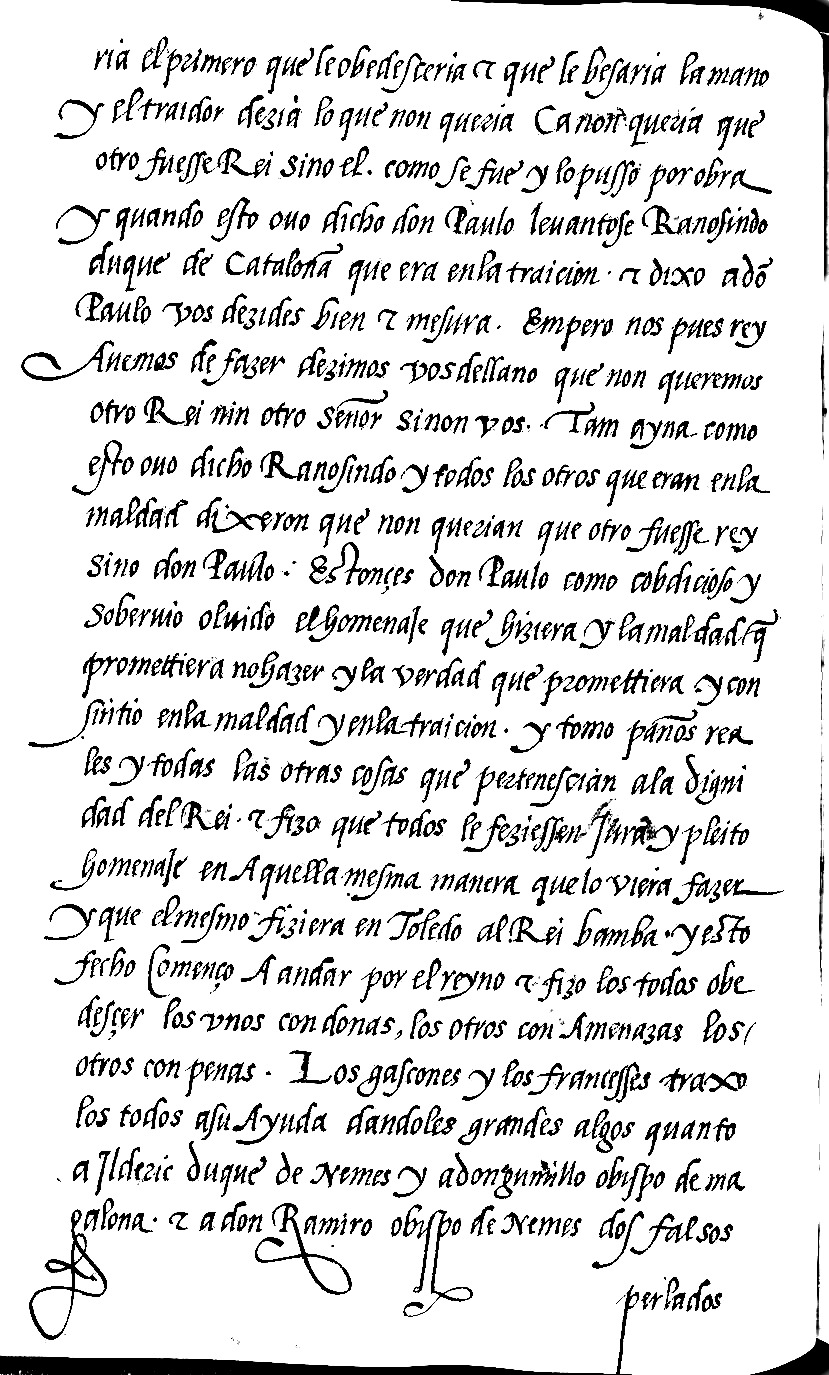 ria el primero que le obedesceria τ que le besaria la mano
y el traidor dezia lo que non queria Ca non queria que
otro fuesse Rei sino el. como se fue y lo pusso por obra
y quando esto ouo dicho don Paulo leuantose Ranosindo
duque de Cataloña que era enla traicion. τ dixo a dõ
Paulo vos dezides bien τ mesura. Empero nos pues rey
Auemos de fazer dezimos vos dellano que non queremos
otro Rei nin otro señor sinon vos. Tam ayna como
esto ouo dicho Ranosindo y todos los otros que eran enla
maldad dixeron que non querian que otro fuesse rey
sino don Paulo. Estonçes don Paulo como cobdicioso y
soberuio oluido el homenaje que hiziera y la maldad q̃
promettiera no hazer y la verdad que promettiera y con
sintio enla maldad y enla traicion. y tomo paños rea
les y todas las otras cosas que pertenescian ala digni
dad del Rei. τ fizo que todos le feziessen Jura y pleito
homenaje en Aquella mesma manera que lo viera fazer
y que el mesmo fiziera en Toledo al Rei bamba. y esto
fecho Començo A andar por el reyno τ fizo los todos obe
desçer los vnos con donas, los otros con Amenazas los
otros con penas. Los gascones y los francesses traxo
los todos asu Ayuda dandoles grandes algos quanto
a Jlderic duque de Nemes y a don gumillo obispo de ma
galona. τ a don Ramiro obispo de Nemes dos falsos
perlados